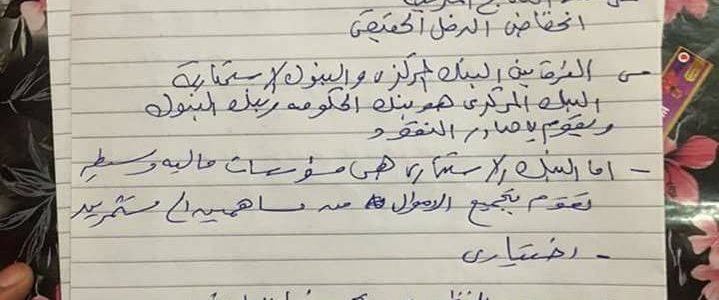 انخفاض الدخل الحقيقي
س الفرق بين البنك المركزي والبنوك الاستثمارية
البنك المركزي هو بنك الحكومه وبنك البنوك
ويقوم باصدار النقود
- اما البنك الاستثماري هي مؤسسات ماليه وسيطه
تقوم بتجميع الاموال من مساهمين الى مستثمرين
- اختياري